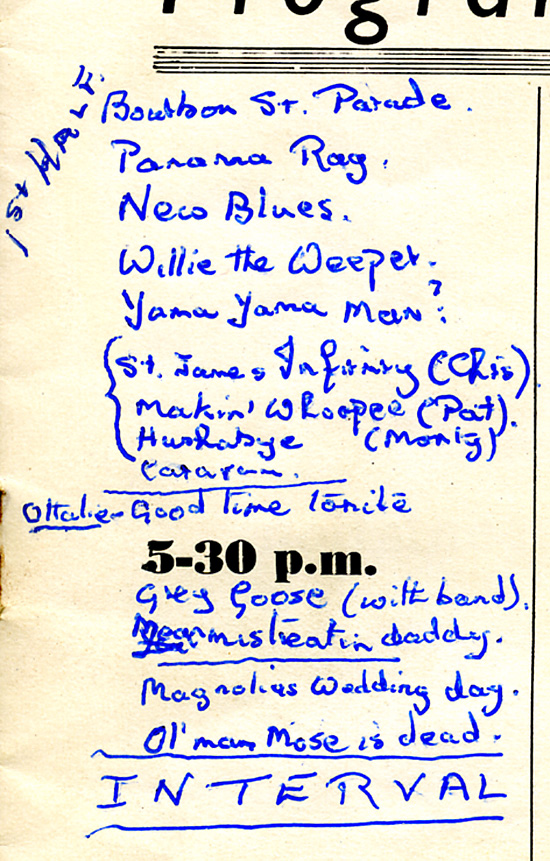 Program
1st HALF
Bourbon St. Parade.
Panama Rag.
New Blues.
Willie the Weeper.
Yama Yama Man?
St. James Infirmry (Chris)
Makin' Whoopee (Pat).
Hushabye (Monty)
Caravan.
Ottalie - Good Time Tonite
5-30 p.m.
Grey Goose (with band).
Mean mistreatin daddy.
Magnolias Wedding day.
Ol' man Mose is dead.
INTERVAL